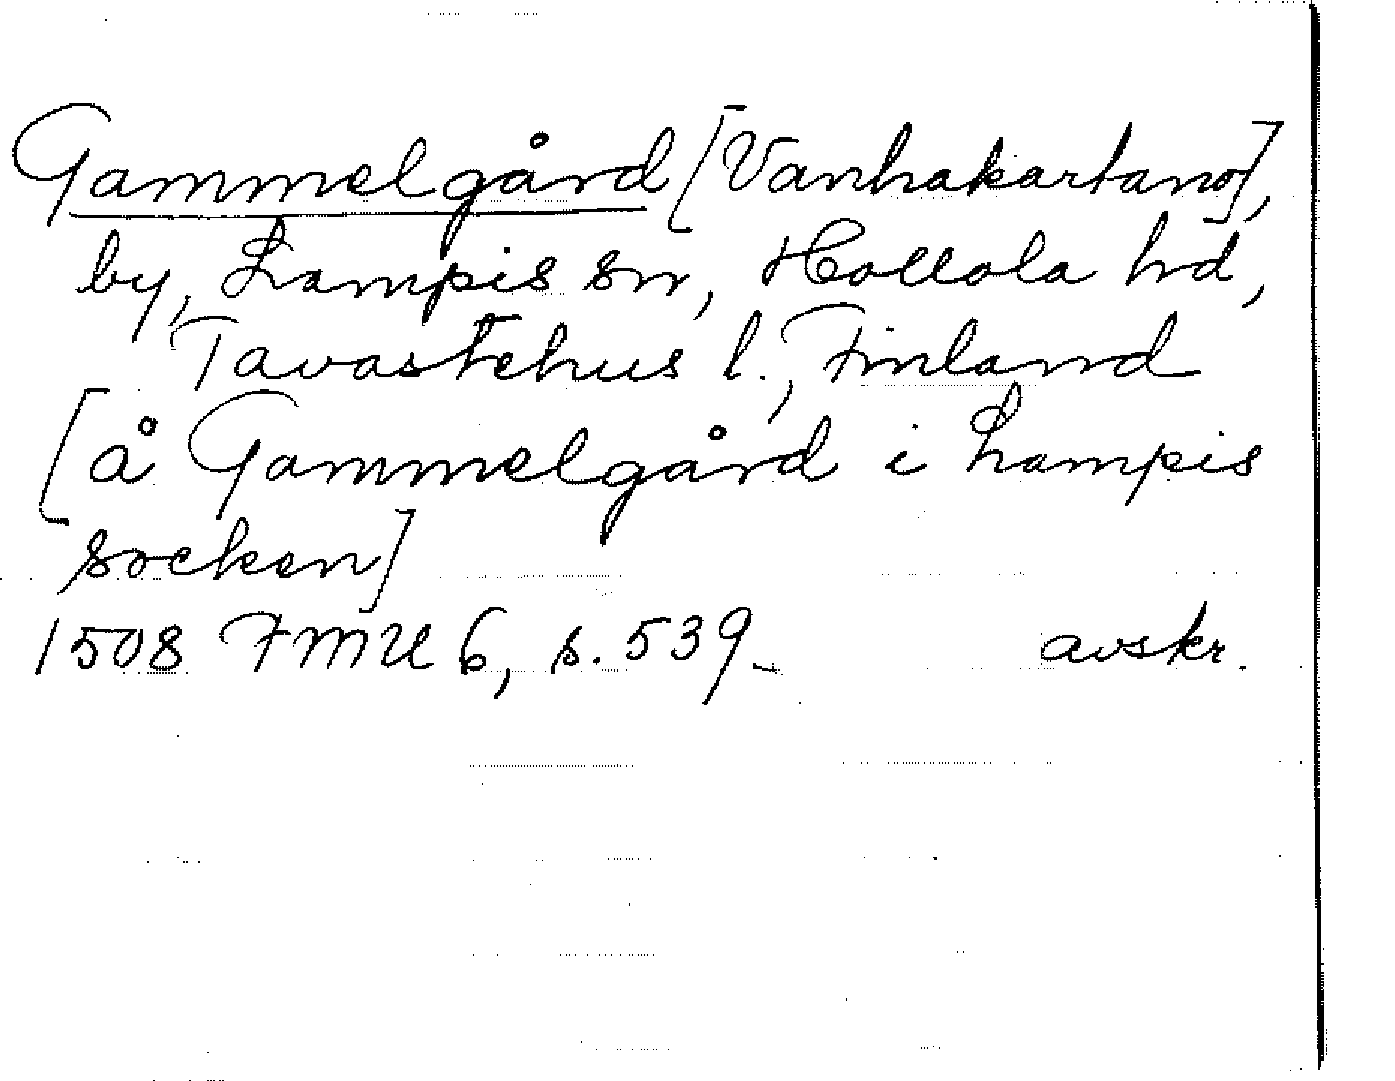 Gammelgård [Vanhakartano],
by, Lampis sn, Hollola hd,
Tavastehus l., Finland
[å Gammelgård i Lampis
socken]
1508 FMU 6, s. 539. avskr.